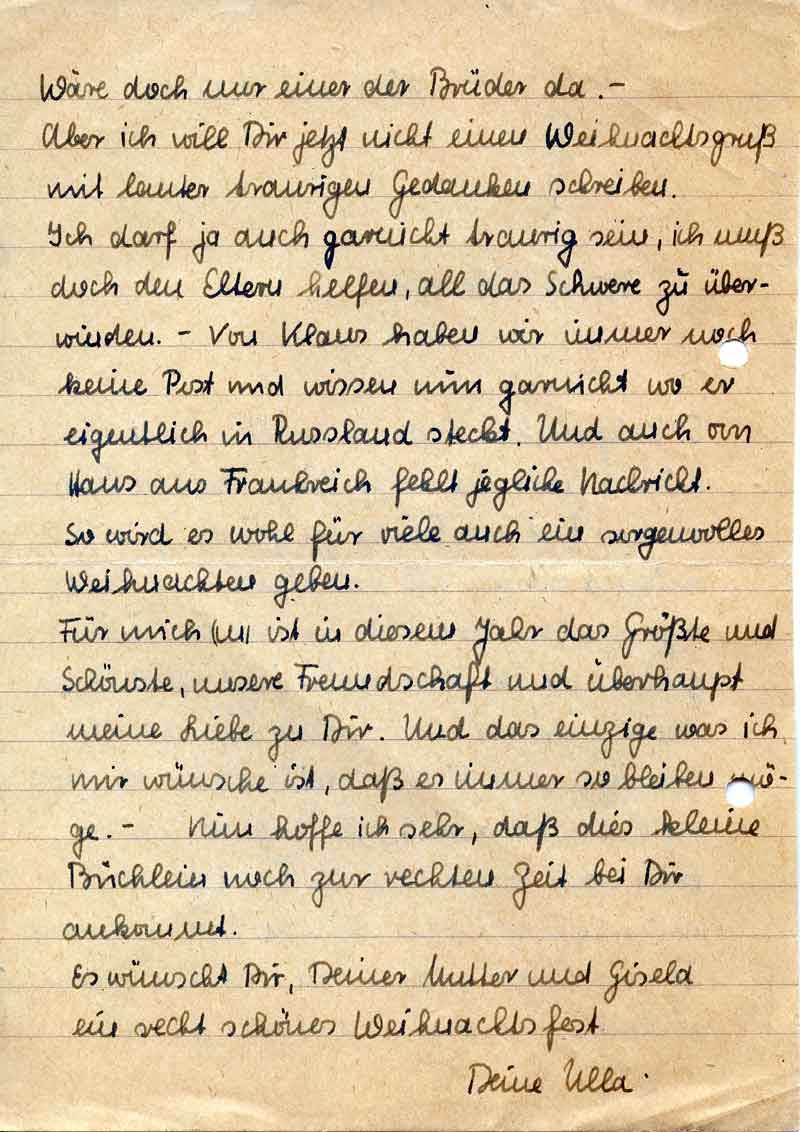 Wäre doch nur einer der Brüder da. -
Aber ich will Dir jetzt nicht einen Weihnachtsgruß
mit lauter traurigen Gedanken schreiben.
Ich darf ja auch garnicht traurig sein, ich muß
doch den Eltern helfen, all das Schwere zu über-
winden. - Von Klaus haben wir immer noch
keine Post und wissen nun garnicht wo er
eigentlich in Russland steckt. Und auch von
Hans aus Frankreich fehlt jegliche Nachricht.
So wird es wohl für viele auch ein sorgenvolles
Weihnachten geben.
Für mich ist in diesem Jahr das Größte und
Schönste, unsere Freundschaft und überhaupt
meine Liebe zu Dir. Und das einzige was ich
mir wünsche ist, daß es immer so bleiben mö-
ge. - Nun hoffe ich sehr, daß dies kleine
Büchlein noch zur rechten Zeit bei Dir
ankommt.
Es wünscht Dir, Deiner Mutter und Gisela
ein recht schönes Weihnachtsfest
Deine Ulla.